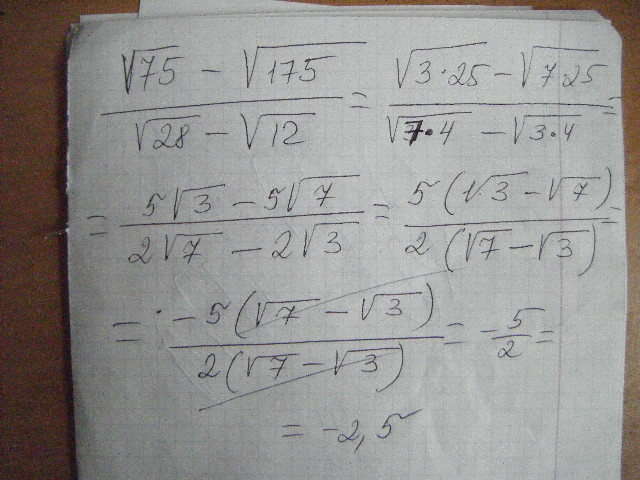 (√75 − √175)/(√28 − √12) = (√3·25 − √7·25)/(√7·4 − √3·4) =
= (5√3 − 5√7)/(2√7 − 2√3) = 5(√3 − √7)/2(√7 − √3) =
= −5(√7 − √3)/2(√7 − √3) = −5/2 =
= −2,5